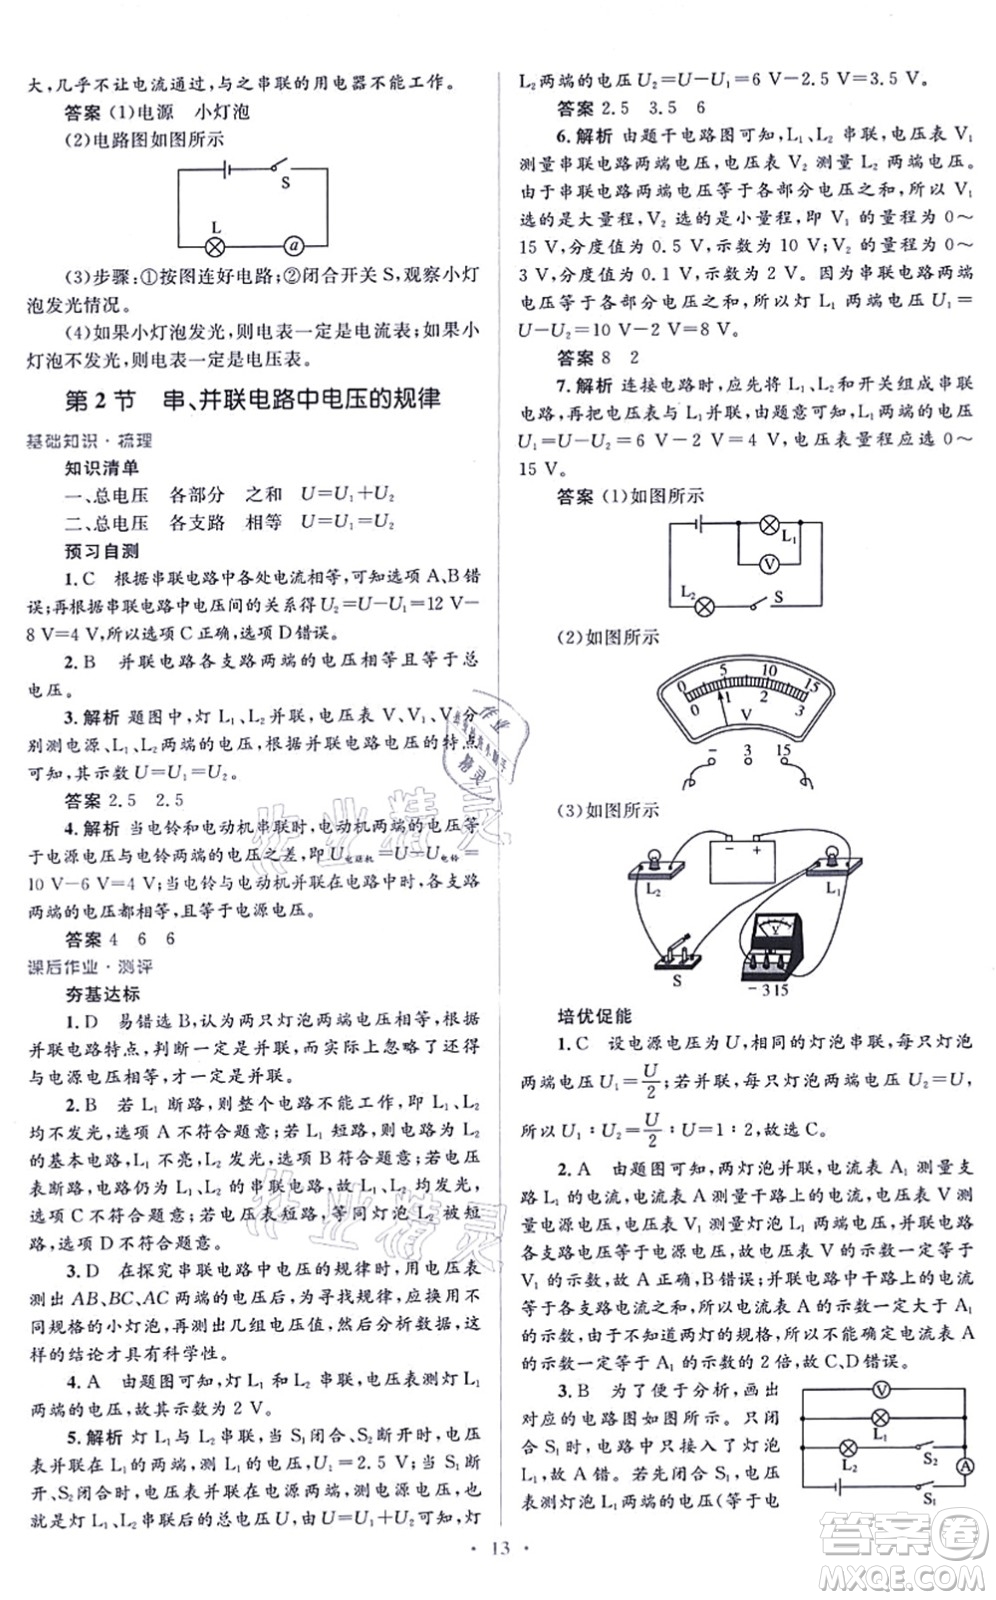 大,几乎不让电流通过,与之串联的用电器不能工作。
答案 (1)电源 小灯泡
(2)电路图如图所示
S
L
a
(3)步骤:①按图连好电路;②闭合开关 S,观察小灯
泡发光情况。
(4)如果小灯泡发光,则电表一定是电流表;如果小
灯泡不发光,则电表一定是电压表。
第 2 节 串、并联电路中电压的规律
基础知识·梳理
知识清单
一、总电压 各部分 之和 U=U₁+U₂
二、总电压 各支路 相等 U=U₁=U₂
预习自测
1.C 根据串联电路中各处电流相等,可知选项 A、B 错
误;再根据串联电路中电压间的关系得 U₂=U-U₁=12 V-
8 V=4 V,所以选项 C 正确,选项 D 错误。
2.B 并联电路各支路两端的电压相等且等于总
电压。
3.解析 题图中,灯 L₁、L₂ 并联,电压表 V、V₁、V₂ 分
别测电源、L₁、L₂ 两端的电压,根据并联电路电压的特点
可知,其示数 U=U₁=U₂。
答案 2.5 2.5
4.解析 当电铃和电动机串联时,电动机两端的电压等
于电源电压与电铃电压之差,即 U电动机=U-U电铃=
10 V-6 V=4 V;当电铃与电动机并联在电路中时,各支路
两端的电压都相等,且等于电源电压。
答案 4 6 6
课后作业·测评
夯基达标
1.D 易错选 B,认为两只灯泡两端电压相等,根据
并联电路特点,判断一定是并联,而忽略了还必须得
与电源电压相等,才一定是并联。
2.B 若 L₁ 断路,则整个电路不能工作,即 L₁、L₂
均不发光,选项 A 不符合题意;若 L₁ 短路,则只有 L₂
的基本电路,L₁ 不亮,L₂ 发光,选项 B 符合题意;若电压
表断路,则电路变为 L₁、L₂ 的串联电路,L₁、L₂ 均发光,
选项 C 不符合题意;若电压表短路,等同灯 L₂ 被短
路,选项 D 不符合题意。
3.D 在探究串联电路中电压的规律时,用电压表
测出 AB、BC、AC 两端的电压后,为寻找规律,应换用不
同规格的小灯泡,再测出几组电压值,然后分析数据,这
样的结论才具有科学性。
4.A 由题图可知,灯 L₁ 和 L₂ 串联,电压表测灯 L₁
两端的电压,故其示数为 2 V。
5.解析 灯 L₁ 与 L₂ 串联,当 S₁、S₂ 断开时,电压表
并联在 L₁ 的两端,测 L₁ 的电压,即 U₁=2.5 V;当 S₁ 断
开、S₂ 闭合时,电压表并联在电源两端,测电源电压,也
就是灯 L₁、L₂ 串联后的总电压,由 U=U₁+U₂ 可知,灯
L₂ 两端的电压 U₂=U-U₁=6 V-2.5 V=3.5 V。
答案 2.5 3.5 6
6.解析 由题干电路图可知,L₁、L₂ 串联,电压表 V₁
测量串联电路两端电压,电压表 V₂ 测量 L₂ 两端电压。
由于串联电路两端电压等于各部分电压之和,所以 V₁
选的是大量程,V₂ 选的是小量程,即 V₁ 的量程为 0～
15 V,分度值为 0.5 V,示数为 10 V;V₂ 的量程为 0～
3 V,分度值为 0.1 V,示数为 2 V。因为串联电路两端
电压等于各部分电压之和,所以灯 L₁ 两端电压 U₁=
U-U₂=10 V-2 V=8 V。
答案 8 2
7.解析 连接电路时,应先将灯和开关组成串联电
路,再把电压表与灯 L₁ 并联。由题意可知,灯的电压
U₁=U-U₂=9 V-5 V=4 V,电压表量程应选 0～
15 V。
答案 (1)如图所示
L₁
V
L₂
S
(2)如图所示
0 5 10 15
0 1 2 3
V
- 3 15
(3)如图所示
- +
L₂
L₁
V
S
-315
培优促能
1.C 设电源电压为 U,相同的灯泡串联,每只灯泡
两端电压 U₁=U/2;若并联,每只灯泡两端电压 U₂=U,
所以 U₁∶U₂=U/2∶U=1∶2,故选 C。
2.A 由题图可知,两灯泡并联,电流表 A₁ 测量支
路 L₁ 的电流,电流表 A 测量干路上的电流,电压表 V 测
量电源电压,电压表 V₁ 测量灯泡 L₁ 两端电压,并联电路
各支路电压等于电源电压,因此电压表 V 的示数等于
V₁ 的示数,故 A 正确,B 错误;并联电路中干路上的电流
等于各支路电流之和,所以电流表 A 的示数大于 A₁ 的
示数,由于不知道两灯的规格,所以不能确定电流表 A
的示数是 A₁ 的示数的 2 倍,故 C、D 错误。
3.B 为了便于分析,画出
对应的电路图如图所示。只闭
合 S₁ 时,电路中只有一只灯泡
发光,故 A 错。若先闭合 S₁,电压
表测灯泡 L₁ 的电压(等于电
V
L₁
L₂
S₂
A
S₁
· 13 ·
作业精灵
作业精灵
作业
精灵
答案圈
MXQE.COM